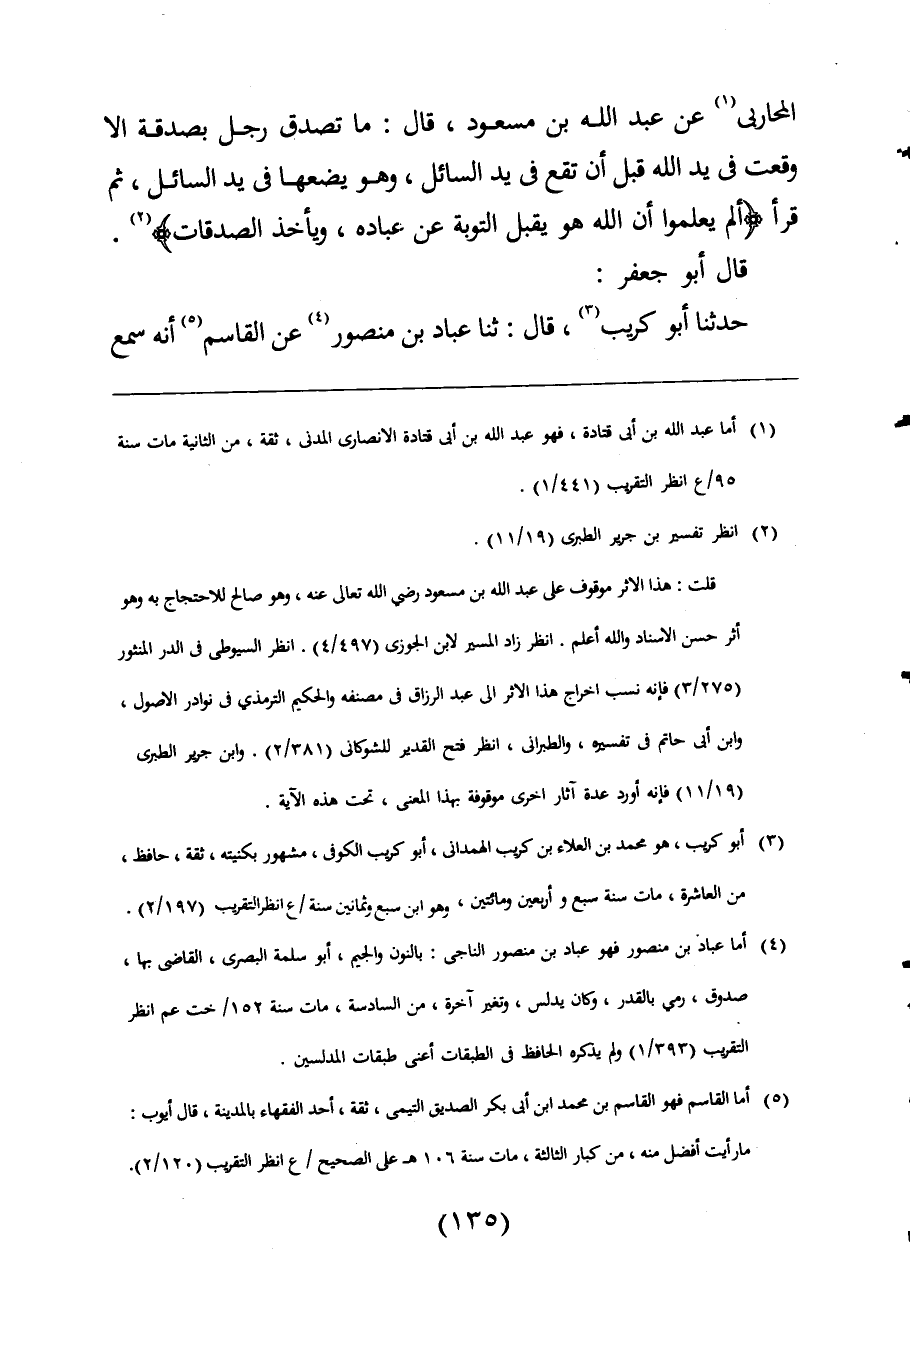 المحاربى(١) عن عبد اللـه بن مسعـود ، قال : ما تصدق رجـل بصدقـة الا
وقعت فى يد الله قبل أن تقع فى يد السائل ، وهـو يضعهـا فى يد السائـل ، ثم
قرأ ﴿ألم يعلموا أن الله هو يقبل التوبة عن عباده ، ويأخذ الصدقات﴾(٢) .
قال أبو جعفر :
حدثنا أبو كريب(٣) ، قال : ثنا عباد بن منصور(٤) عن القاسم(٥) أنه سمع
(١) أما عبد الله بن أبى قتادة ، فهو عبد الله بن أبى قتادة الانصارى المدنى ، ثقة ، من الثانية مات سنة
٩٥/ع انظر التقريب (١/٤٤١) .
(٢) انظر تفسير بن جرير الطبرى (١١/١٩) .
قلت : هذا الاثر موقوف على عبد الله بن مسعود رضي الله تعالى عنه ، وهو صالح للاحتجاج به وهو
أثر حسن الاسناد والله أعلم . انظر زاد المسير لابن الجوزى (٤/٤٩٧) . انظر السيوطى فى الدر المنثور
(٣/٢٧٥) فإنه نسب اخراج هذا الاثر الى عبد الرزاق فى مصنفه والحكيم الترمذي فى نوادر الاصول ،
وابن أبى حاتم فى تفسيره ، والطبرانى ، انظر فتح القدير للشوكانى (٢/٣٨١) . وابن جرير الطبرى
(١١/١٩) فإنه أورد عدة آثار اخرى موقوفة بهذا المعنى ، تحت هذه الآية .
(٣) أبو كريب ، هو محمد بن العلاء بن كريب الهمدانى ، أبو كريب الكوفى ، مشهور بكنيته ، ثقة ، حافظ ،
من العاشرة ، مات سنة سبع و أربعين ومائتين ، وهو ابن سبع وثمانين سنة /ع انظرالتقريب (٢/١٩٧) .
(٤) أما عباد بن منصور فهو عباد بن منصور الناجى : بالنون والجيم ، أبو سلمة البصرى ، القاضى بها ،
صدوق ، رمي بالقدر ، وكان يدلس ، وتغير آخرة ، من السادسة ، مات سنة ١٥٢/ خت عم انظر
التقريب (١/٣٩٣) ولم يذكره الحافظ فى الطبقات أعنى طبقات المدلسين .
(٥) أما القاسم فهو القاسم بن محمد ابن أبى بكر الصديق التيمى ، ثقة ، أحد الفقهاء بالمدينة ، قال أيوب :
مارأيت أفضل منه ، من كبار الثالثة ، مات سنة ١٠٦ هـ على الصحيح / ع انظر التقريب (٢/١٢٠).
(١٣٥)